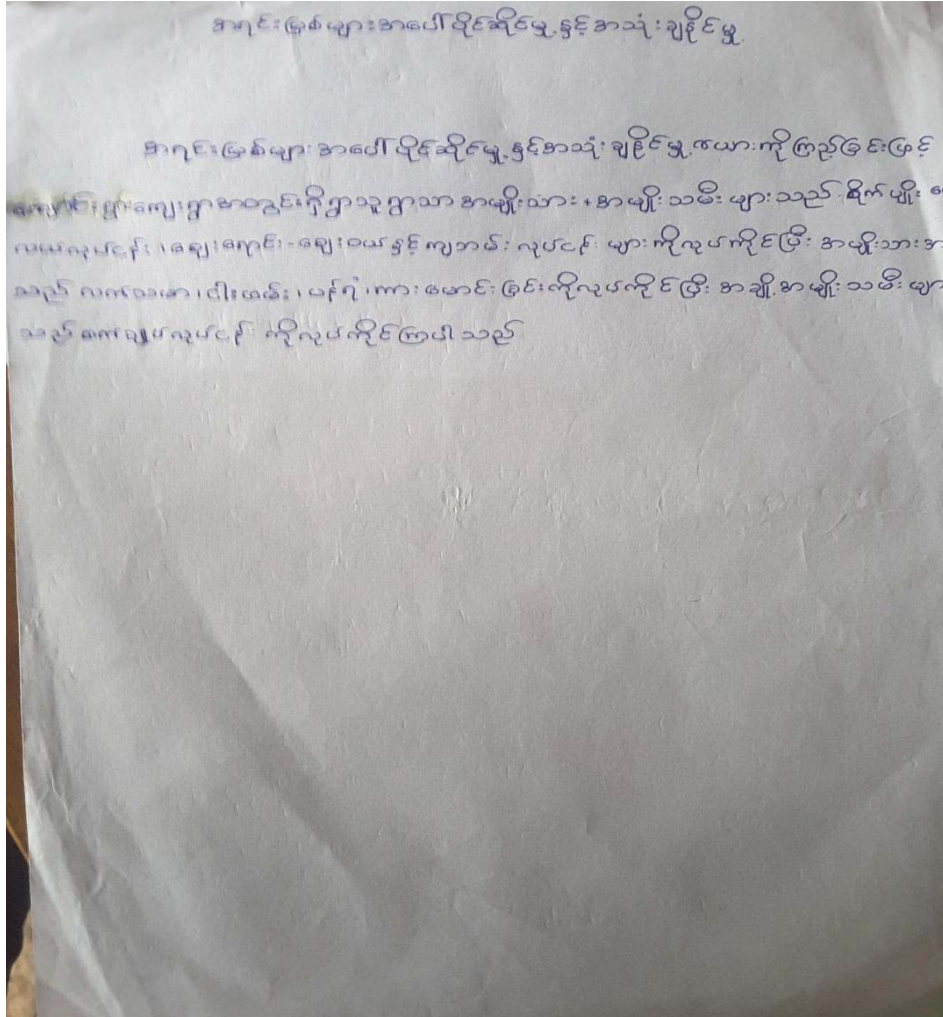 အရင်းမြစ်များအပေါ်ပိုင်ဆိုင်မှု့နှင့်အသုံးချနိုင်မှု့
အရင်းမြစ်များအပေါ်ပိုင်ဆိုင်မှု့နှင့်အသုံးချနိုင်မှု့ဇယားကိုကြည့်ခြင်းဖြင့်
ကျေးရွာအတွင်းရှိရွာသူရွာသာအမျိုးသား+အမျိုးသမီးများသည် စိုက်ပျိုး
လယ်လုပ်ငန်း၊ဈေးရောင်း-ဈေးဝယ်နှင့်ကျဘမ်းလုပ်ငန်းများကိုလုပ်ကိုင်ပြီး အမျိုးသား
သည် လက်သမာ၊ငါးဖမ်း၊ပန်ရံ၊ကားမောင်းခြင်းကိုလုပ်ကိုင်ပြီး အချို့အမျိုးသမီးများ
သည်စက်ချုပ်လုပ်ငန်းကိုလုပ်ကိုင်ကြပါသည်